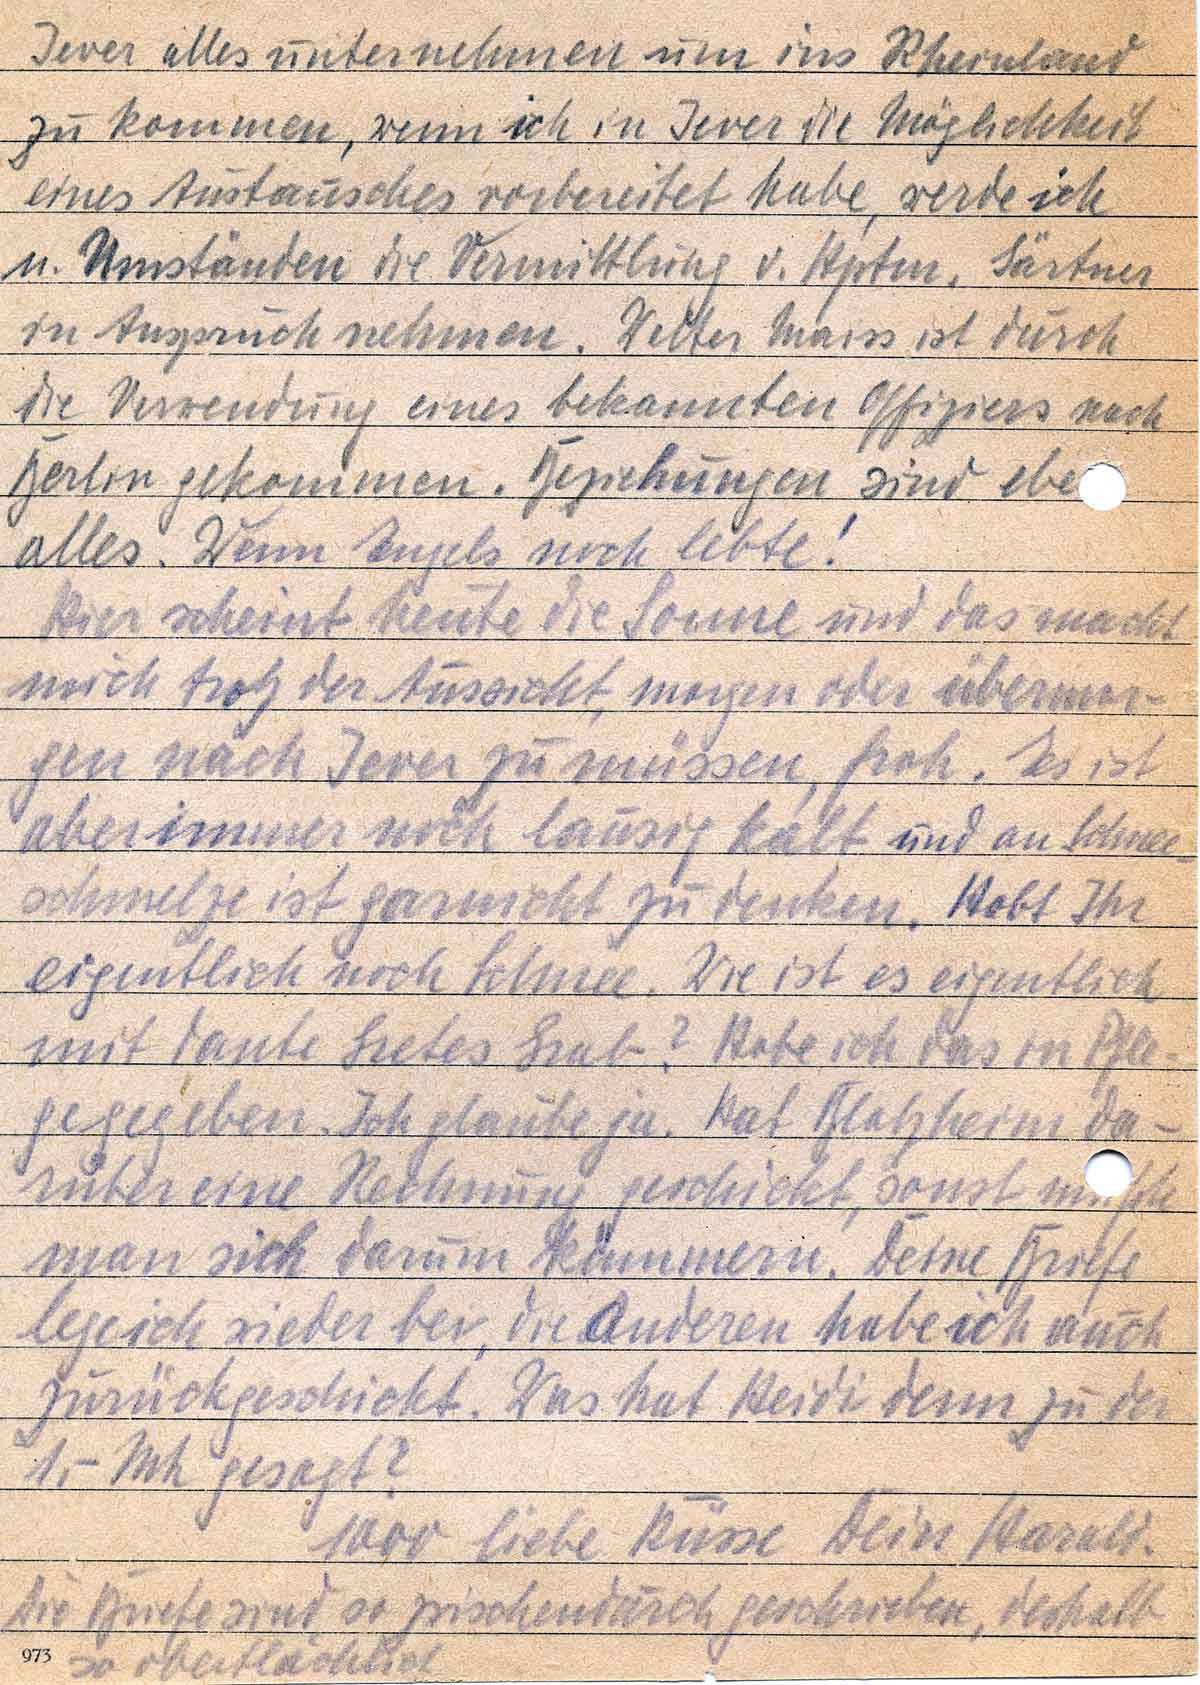 Jever alles unternehmen um ins Rheinland
zu kommen, wenn ich in Jever die Möglichkeit
eines Austausches vorbereitet habe, werde ich
u. Umständen die Vermittlung v. Hptm. Gärtner
in Anspruch nehmen. Welter Maiss ist durch
die Verwendung eines bekannten Offiziers nach
Berlin gekommen. Beziehungen sind ebe
alles. Wenn Engels noch lebte!
Hier scheint heute die Sonne und das macht
mich trotz der Aussicht, morgen oder übermor-
gen nach Jever zu müssen, froh. Es ist
aber immer noch lausig kalt und an Schnee-
schmelze ist garnicht zu denken. Habt Ihr
eigentlich noch Schnee. Wie ist es eigentlich
mit Tante Gretes Grab? Habe ich das in Pfle-
ge gegeben. Ich glaube ja. Hat Blatzheim da-
rüber eine Rechnung geschickt, sonst müsste
man sich darum kümmern. Deine Briefe
lege ich wieder bei, die Anderen habe ich auch
zurückgeschickt. Was hat Heidi denn zu der
1,- Mk gesagt?
1000 liebe Küsse Dein Harald.
Die Briefe sind so zwischendurch geschrieben, deshalb
so oberflächlich
973